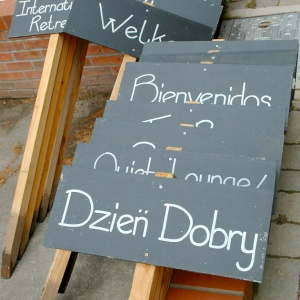 Internati
Retre
Welk
Bienvenidos
Quiet Lounge/
Dzień Dobry